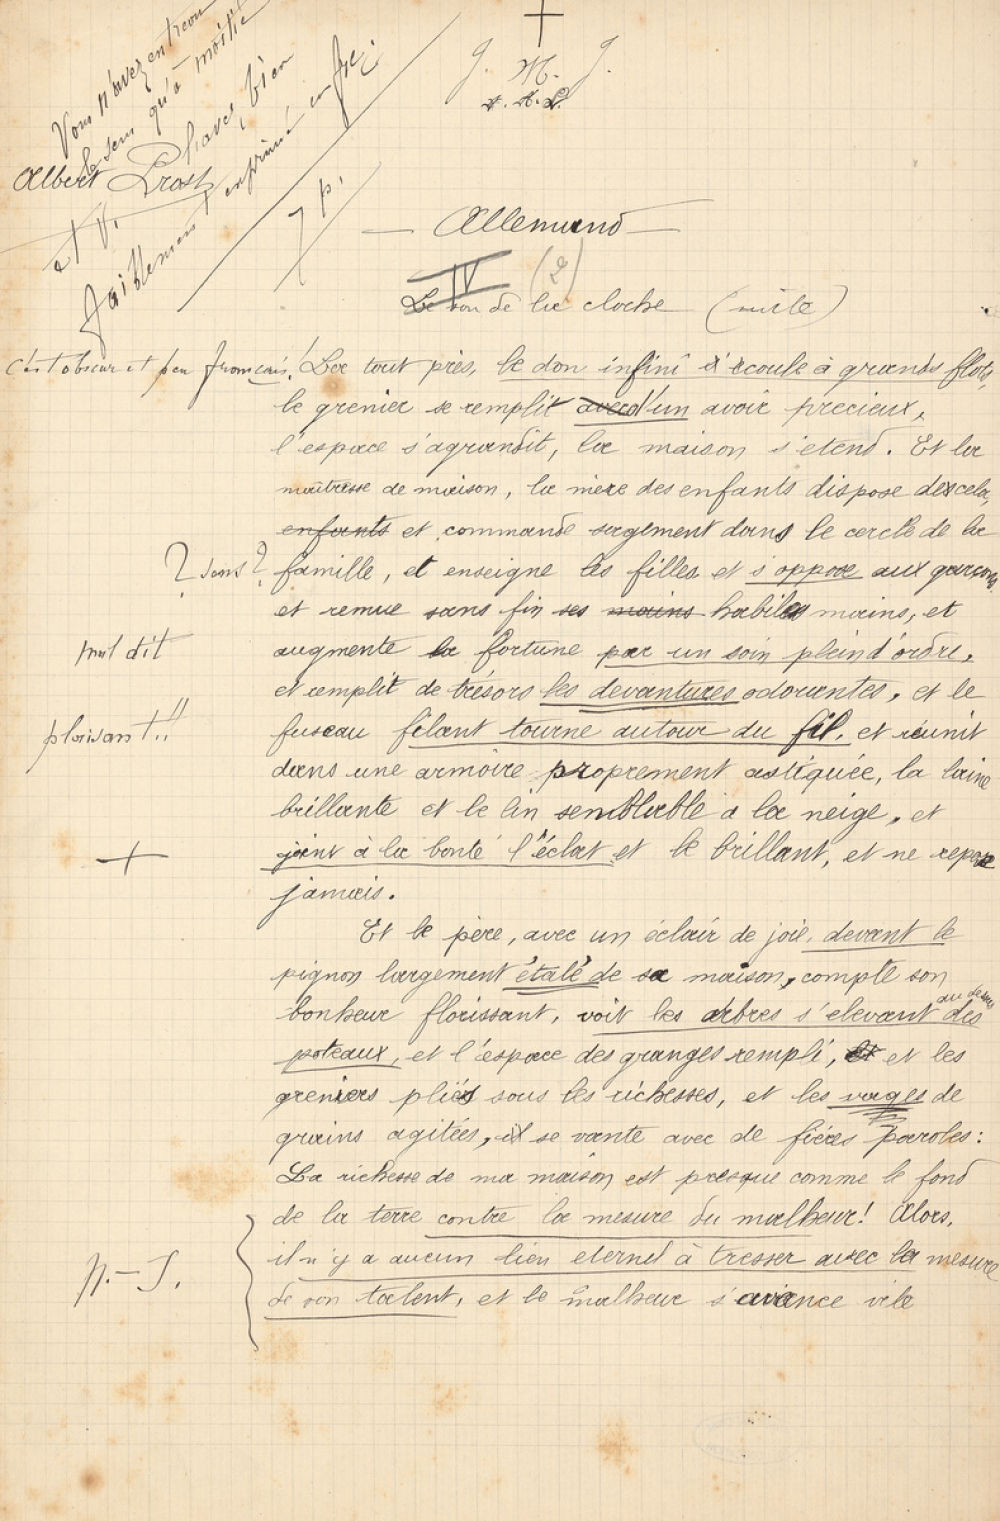 Vous n'avez entrevu
le sens qu'à moitié
et V. Phaves, bien
faiblement exprimé en frç.
7 p.
J. M. J.
Albert Prost
Allemand
IV (2)
Le son de la cloche (suite)
c'est obscur et peu français! Là tout près, le don infini s'écoule à grands flots,
le grenier se remplit avec d'un avoir précieux,
l'espace s'agrandit, la maison s'etend. Et la
maîtresse de maison, la mère des enfants dispose de cela,
enfants et commande sagement dans le cercle de la
? sens? famille, et enseigne les filles et s'oppose aux garçons
et remue sans fin ses mains habiles mains, et
mal dit augmente la fortune par un soin plein d'ordre,
et remplit de trésors les devantures odorantes, et le
plaisant!! fuseau filant tourne autour du fil, et réunit
dans une armoire proprement astiquée, la laine
brillante et le lin semblable à la neige, et
+ joint à la bonté l'éclat et le brillant, et ne repose
jamais.
Et le père, avec un éclair de joie, devant le
pignon largement étalé de sa maison, compte son
bonheur florissant, voit les arbres s'elevant au dessus des
poteaux, et l'espace des granges rempli, et et les
greniers pliés sous les richesses, et les vages de
grains agitées, il se vante avec de fières paroles:
La richesse de ma maison est presque comme le fond
de la terre contre la mesure du malheur! Alors,
il n'y a aucun lien eternel à tresser avec la mesure
n.-S. de son talent, et le malheur s'avance vite